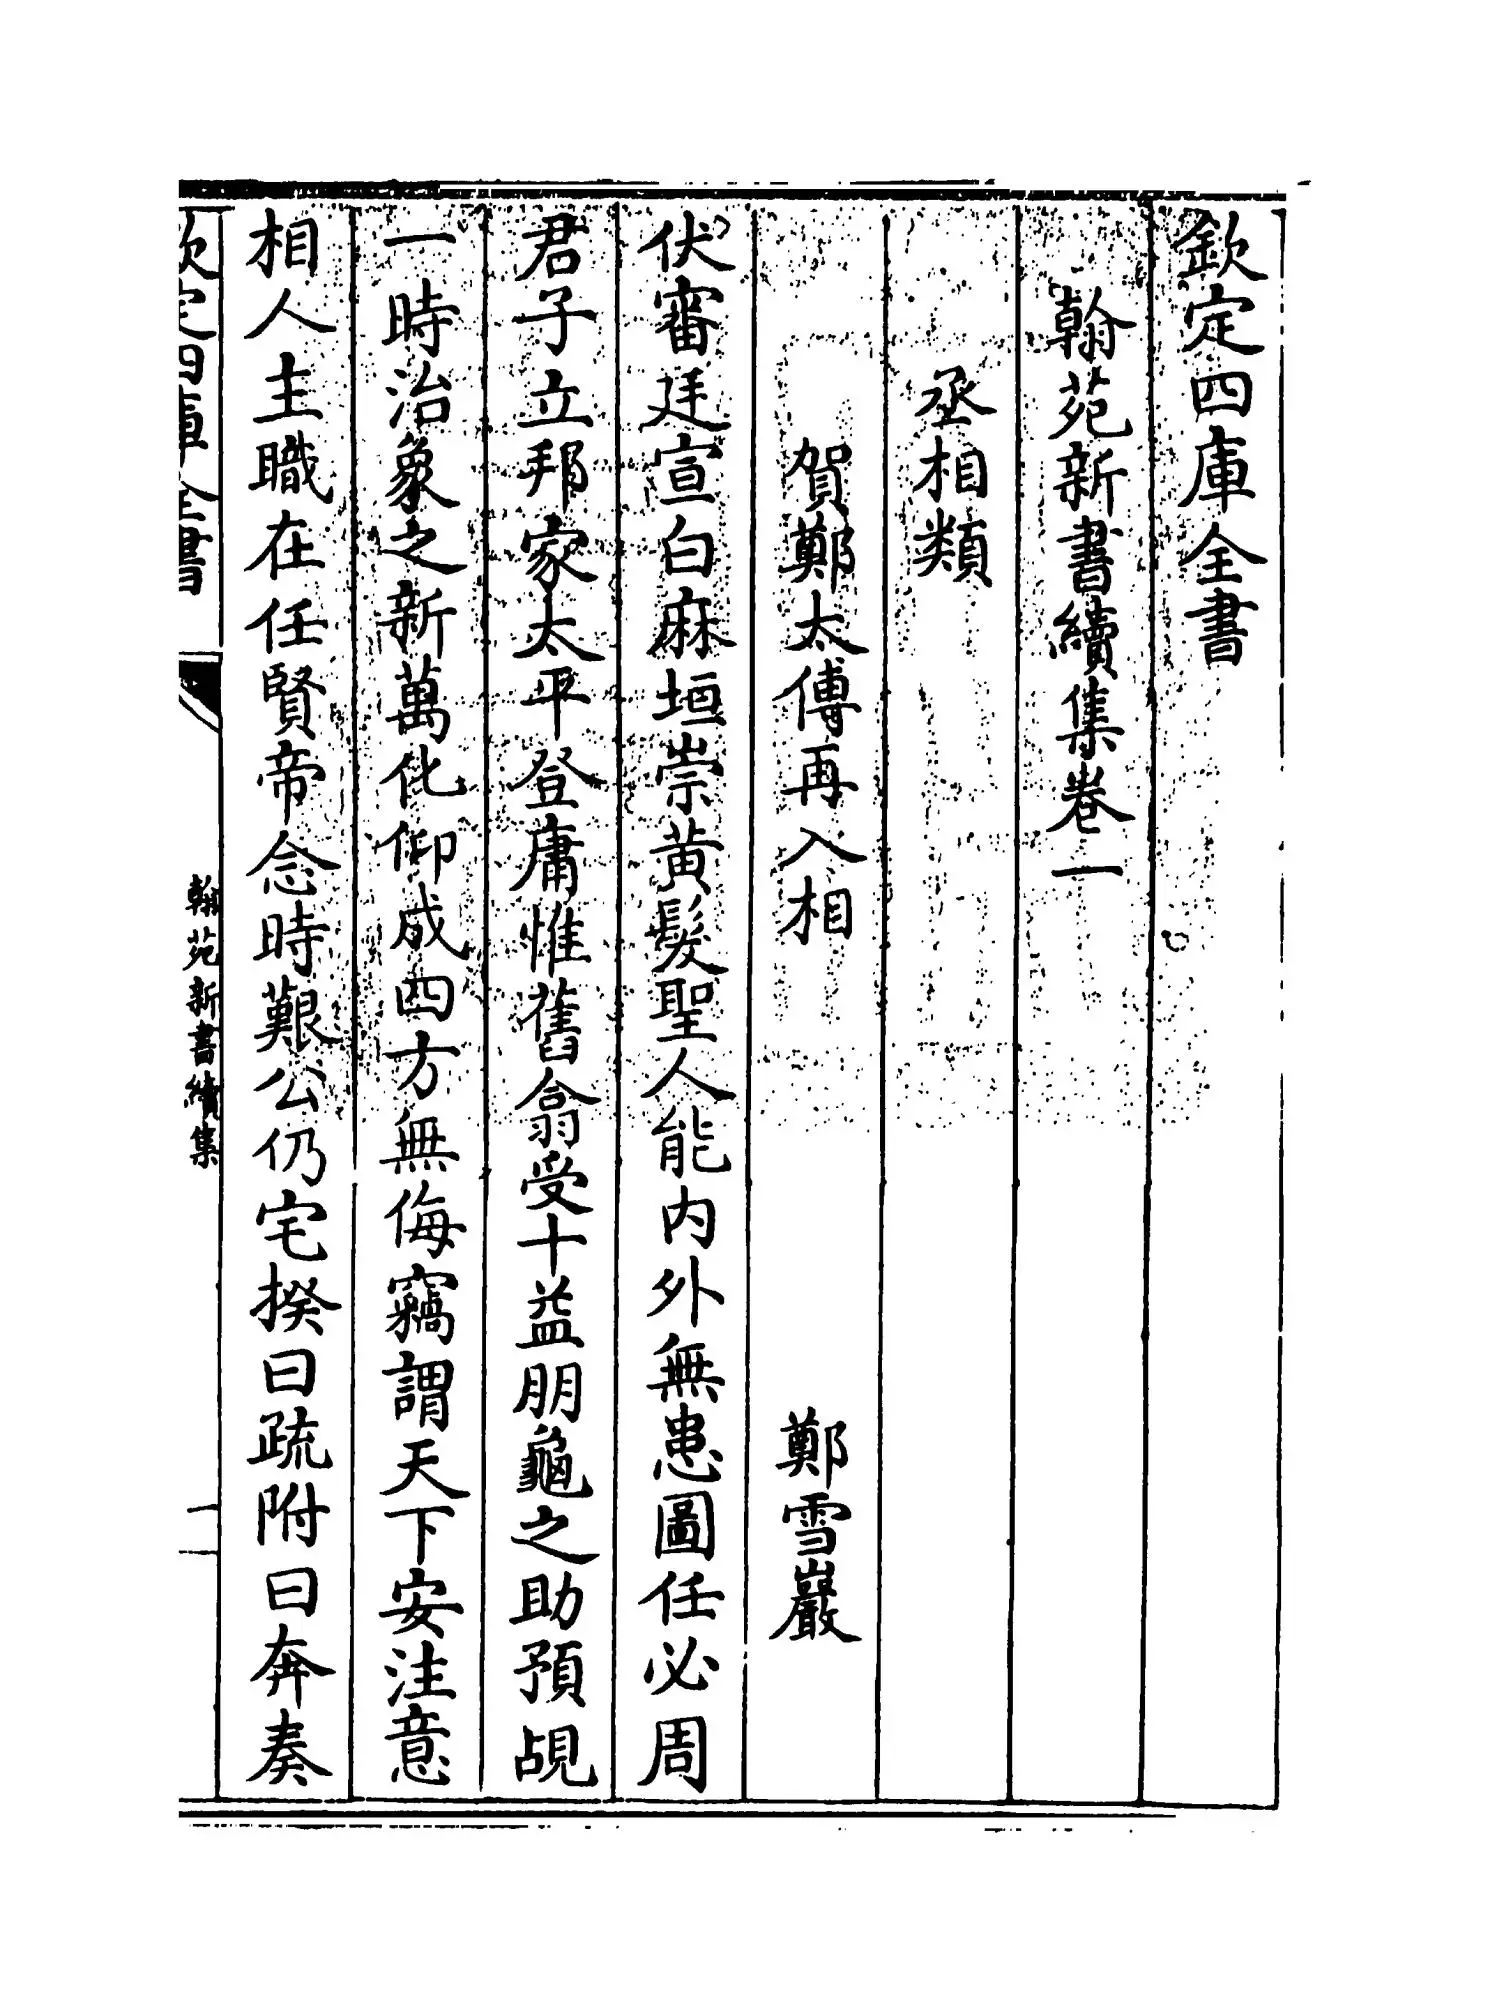 欽定四庫全書
翰苑新書續集卷一
丞相類
賀鄭太傅再入相 鄭雪巖
伏審廷宣白麻垣崇黄髮聖人能内外無患圖任必周
君子立邦家太平登庸惟舊翕受十益朋龜之助預覘
一時治象之新萬化仰成四方無侮竊謂天下安注意
相人主職在任賢帝念時艱公仍宅揆曰疏附曰奔奏
欽定四庫全書
翰苑新書續集
一